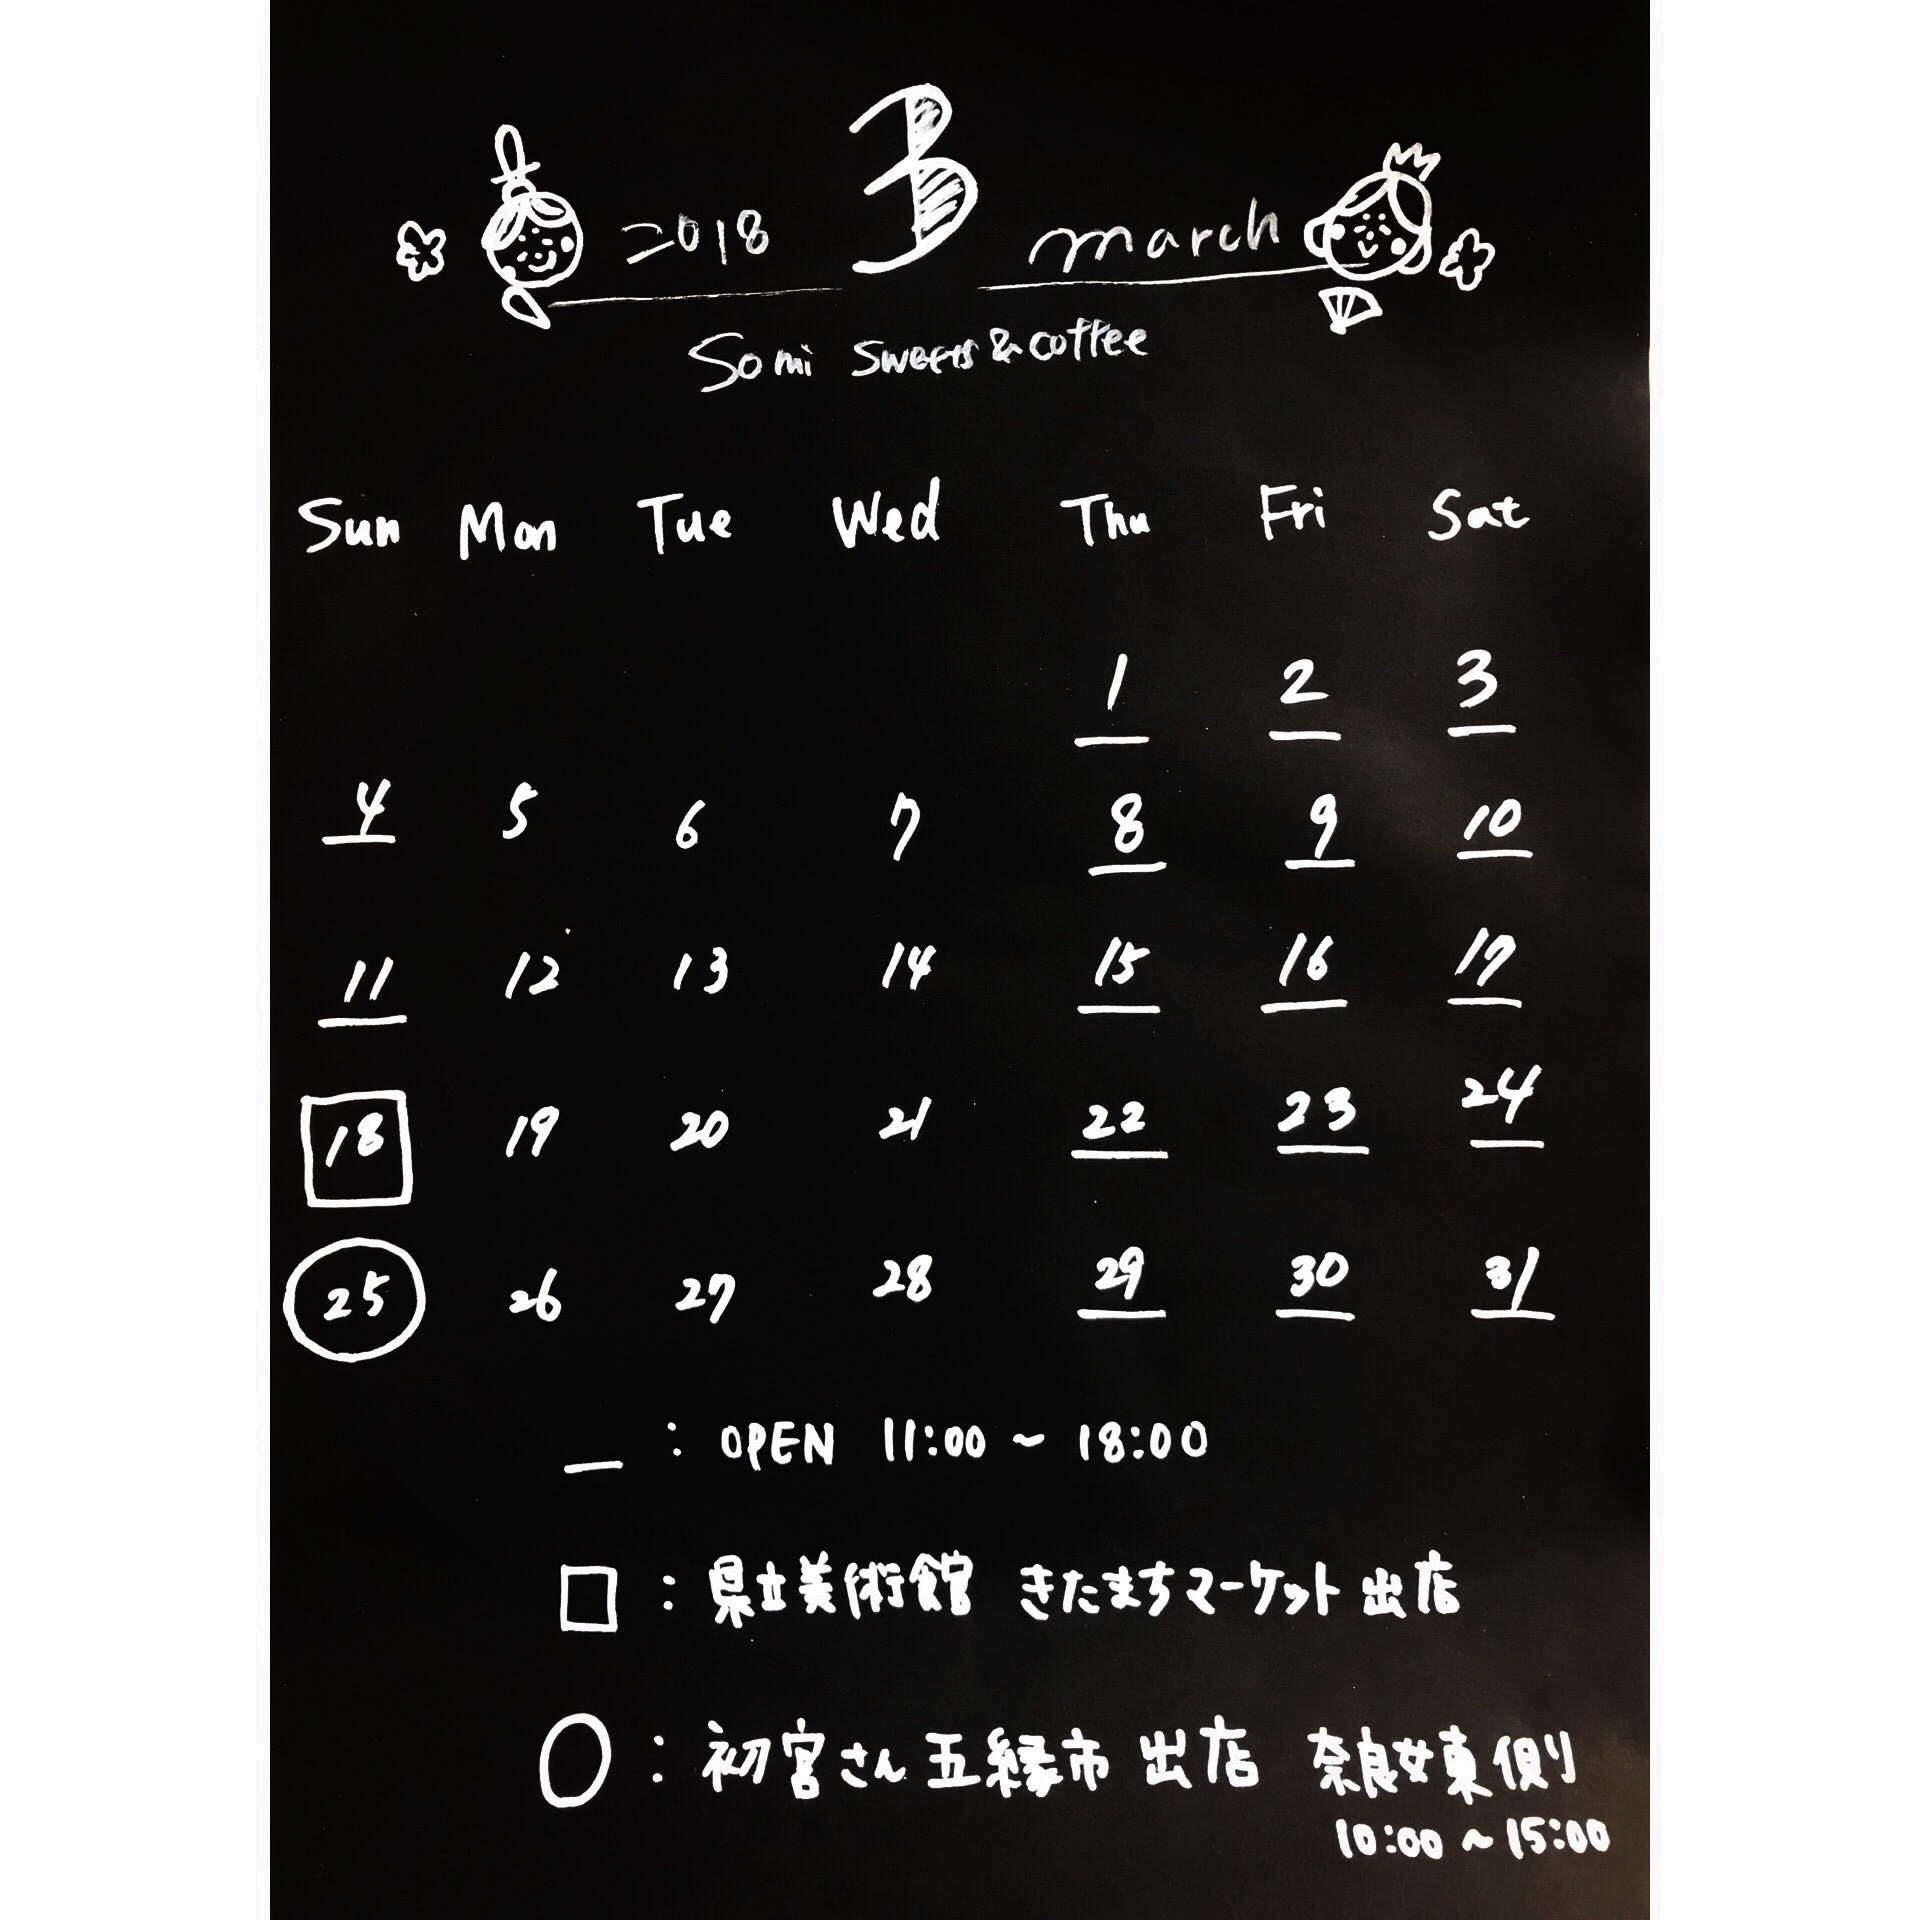 2018 3 march
Somi sweets & coffee
Sun Mon Tue Wed Thu Fri Sat
1 2 3
4 5 6 7 8 9 10
11 12 13 14 15 16 17
18 19 20 21 22 23 24
25 26 27 28 29 30 31
: OPEN 11:00 ~ 18:00
: 県立美術館 きたまちマーケット 出店
: 初宮さん 五縁市 出店 奈良女東側
10:00 ~ 15:00